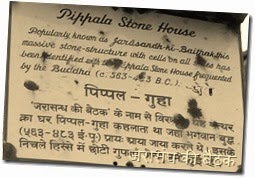 Pippala Stone House
Popularly known as Jarāsandh-ki-Baithak this
massive stone-structure with cells on all sides has
been identified with Pippala Stone House frequented
by the Buddha (c. 563-483 B.C.).
पिप्पल-गुहा
'जरासन्ध की बैठक' के नाम से
का घर पिप्पल-गुहा कहलाता था जहां भगवान बुद्ध
(५६३-४८३ ई.पू.) प्रायः आया जाया करते थे। इसके
निचले हिस्से में छोटी
जरासंध की बैठक